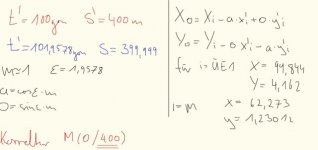 t' = 100gon S' = 400m
t' = 101,9578gon S = 399,999
m=1 ε = 1,9578
a = cos ε · m
o = sin ε · m
Korrektur M (0/400)
X₀ = Xi - a · x'i + o · y'i
Y₀ = Yi - o · x'i - a · y'i
für i = ü E1 X = 99,844
Y = 4,162
i = m X = 62,273
y = 1,23012